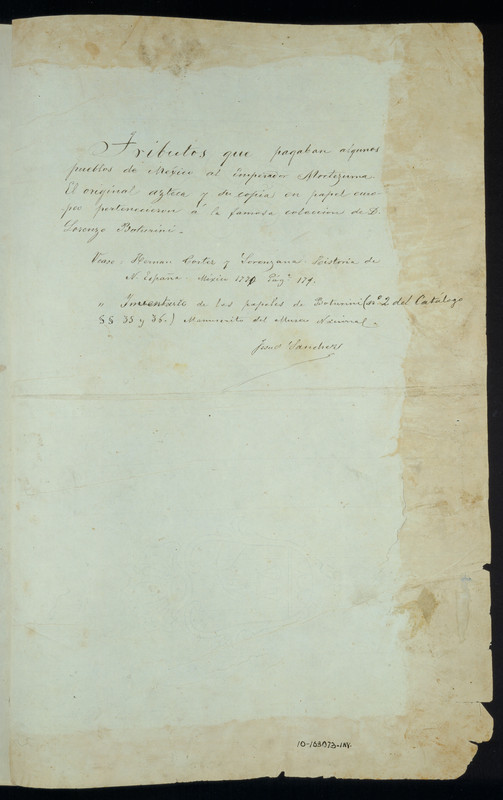 Tributos que pagaban algunos
pueblos de México al Emperador Moctezuma
El original azteca y su copia en papel euro
peo pertenecieron á la famosa colección de D.
Lorenzo Boturini.
Vease. Hernan Cortez y Lorenzana. Historia de
N. España. México 1770 Pág. 179.
" Inventario de los papeles de Boturini (nº 2 del Catálogo
§§ 35 y 36.) Manuscrito del Museo Nacional.
Jesus Sanchez
10-163073-INV.